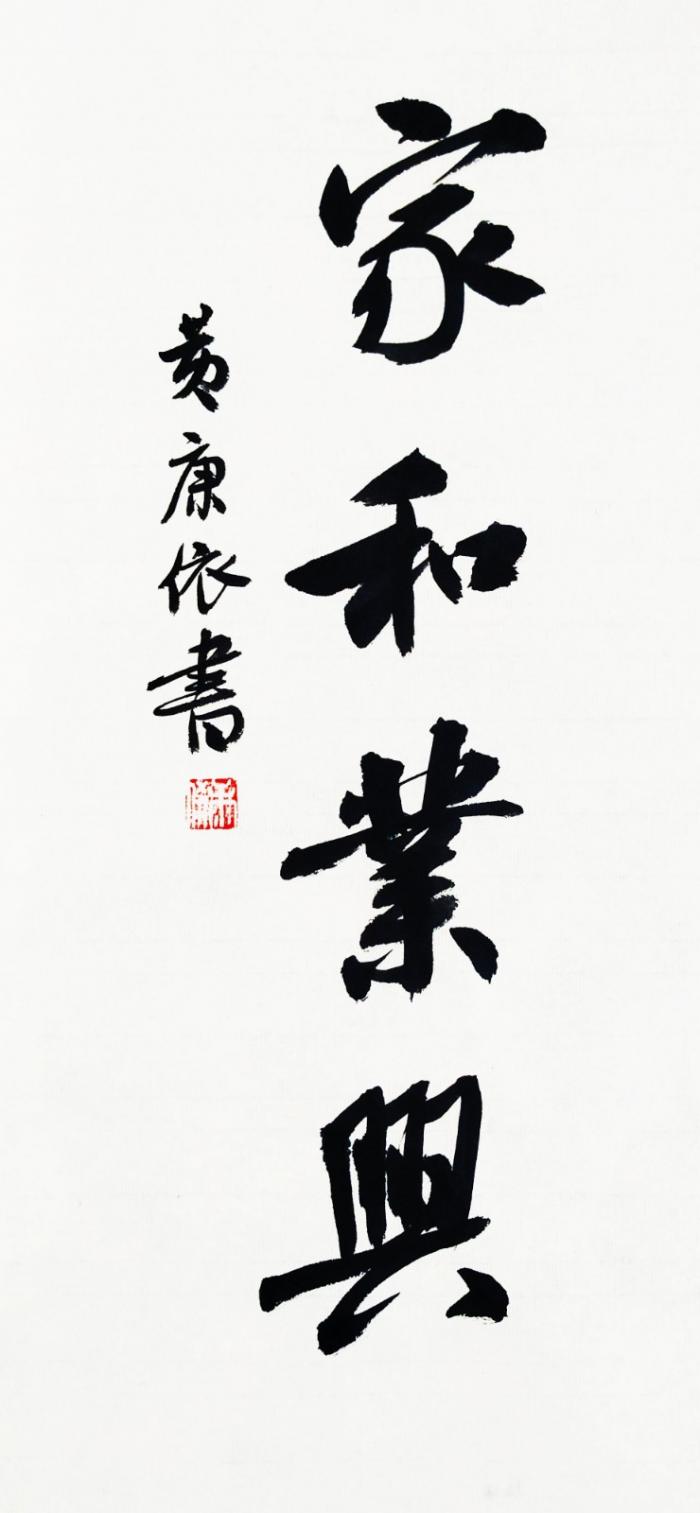 家和業興
黄康依書